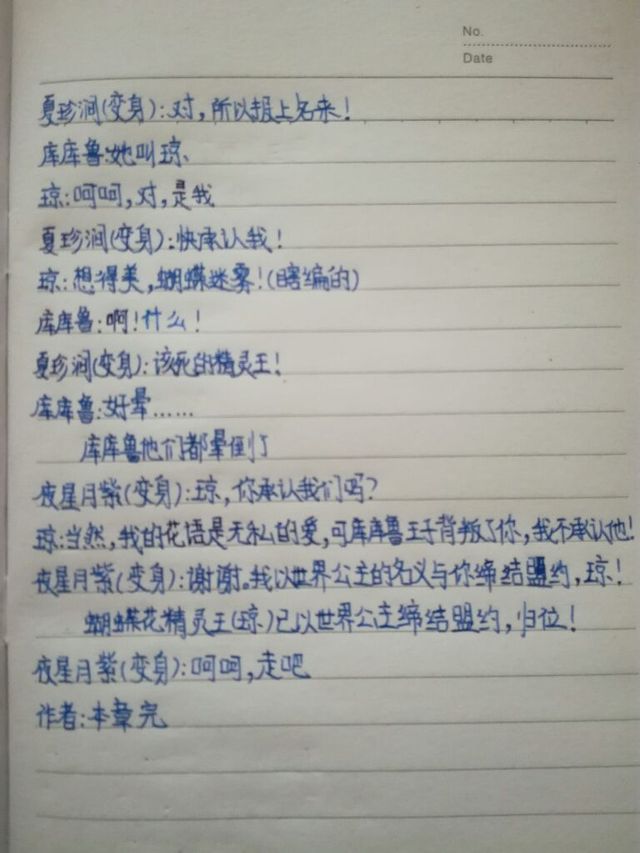 No.
Date
夏珍涧(变身):对,所以报上名来!
库库鲁:她叫琼、
琼:呵呵,对,是我
夏珍涧(变身):快承认我!
琼:想得美,蝴蝶迷雾!(瞎编的)
库库鲁:啊!什么!
夏珍涧(变身):该死的精灵王!
库库鲁:好晕……
库库鲁他们都晕倒了
夜星月紫(变身):琼,你承认我们吗?
琼:当然,我的花语是无私的爱,可库库鲁王子背叛了你,我不承认他!
夜星月紫(变身):谢谢。我以世界公主的名义与你缔结盟约,琼!
蝴蝶花精灵王(琼)已以世界公主缔结盟约,归位!
夜星月紫(变身):呵呵,走吧
作者:本章完